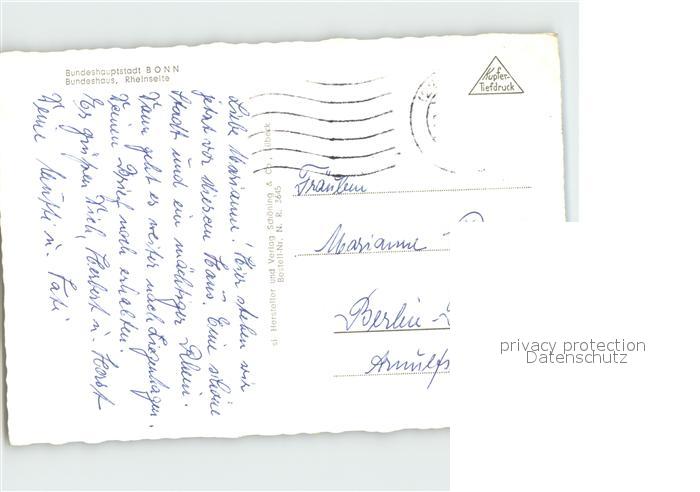 Bundeshauptstadt BONN
Bundeshaus, Rheinseite
Kupfer-
Tiefdruck
Liebe Marianne! Hier stehen wir
jetzt vor diesem Haus. Eine schöne
Stadt und ein mächtiger Rhein.
Dann geht es weiter nach
Deinen Brief noch erhalten.
Es grüßen Dich, Herbert u. Horst
Deine Mutti u. Vati
Hersteller und Verlag Schöning & Co., Lübeck
Bestell-Nr. N. R. 3645
Fräulein
Marianne
Berlin-
Arnulfs
privacy protection
Datenschutz